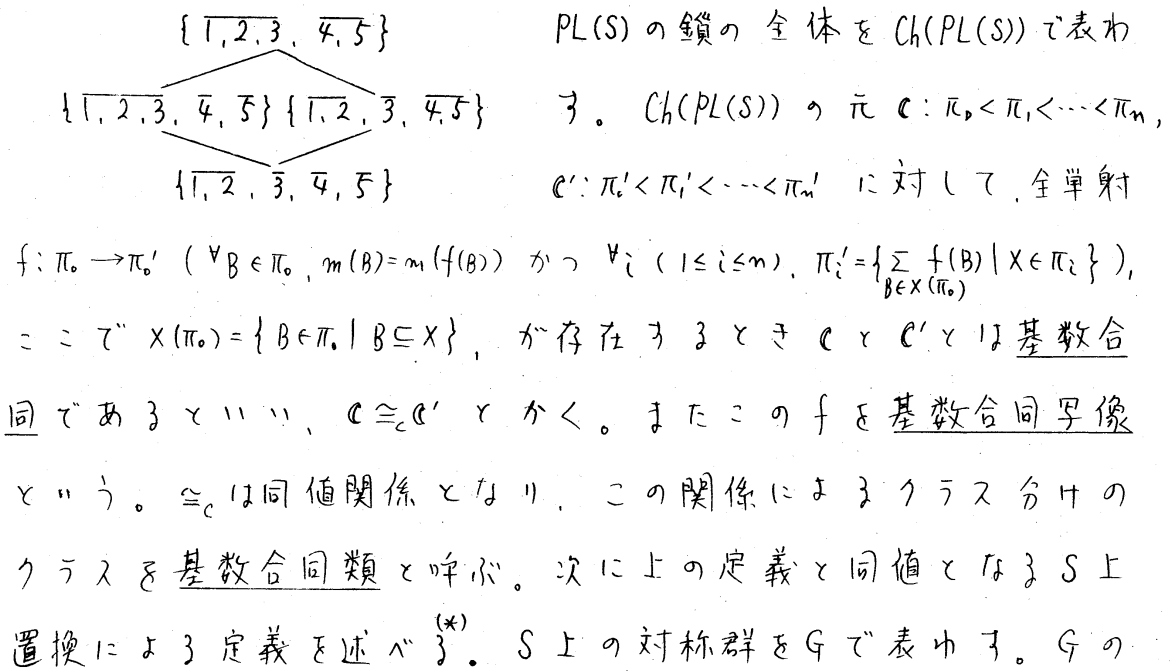 { 1,2,3, 4,5 }
{ 1,2,3, 4, 5 } { 1,2, 3, 4,5 }
{ 1,2, 3, 4, 5 }
PL(S) の鎖の 全体を Ch(PL(S)) で表わ
す。 Ch(PL(S)) の元 C : π₀ < π₁ < ⋯ < πₙ,
C′ : π₀′ < π₁′ < ⋯ < πₙ′ に対して、全単射
f : π₀ → π₀′ ( ∀B ∈ π₀, m(B) = m(f(B)) かつ ∀i (1≤i≤n), πᵢ′ = { ∑_{B∈X(π₀)} f(B) | X ∈ πᵢ } ),
ここで X(π₀) = { B ∈ π₀ | B ⊆ X }, が存在するとき C と C′ とは基数合
同であるといい、 C ≅_c C′ とかく。またこの f を基数合同写像
という。 ≅_c は同値関係となり、この関係によるクラス分けの
クラスを基数合同類と呼ぶ。次に上の定義と同値となる S 上
置換による定義を述べる(*)。 S 上の対称群を G で表わす。 G の